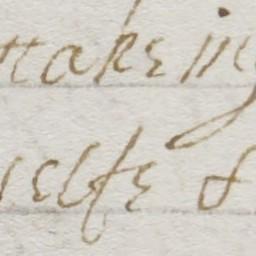 takeing
selfe &